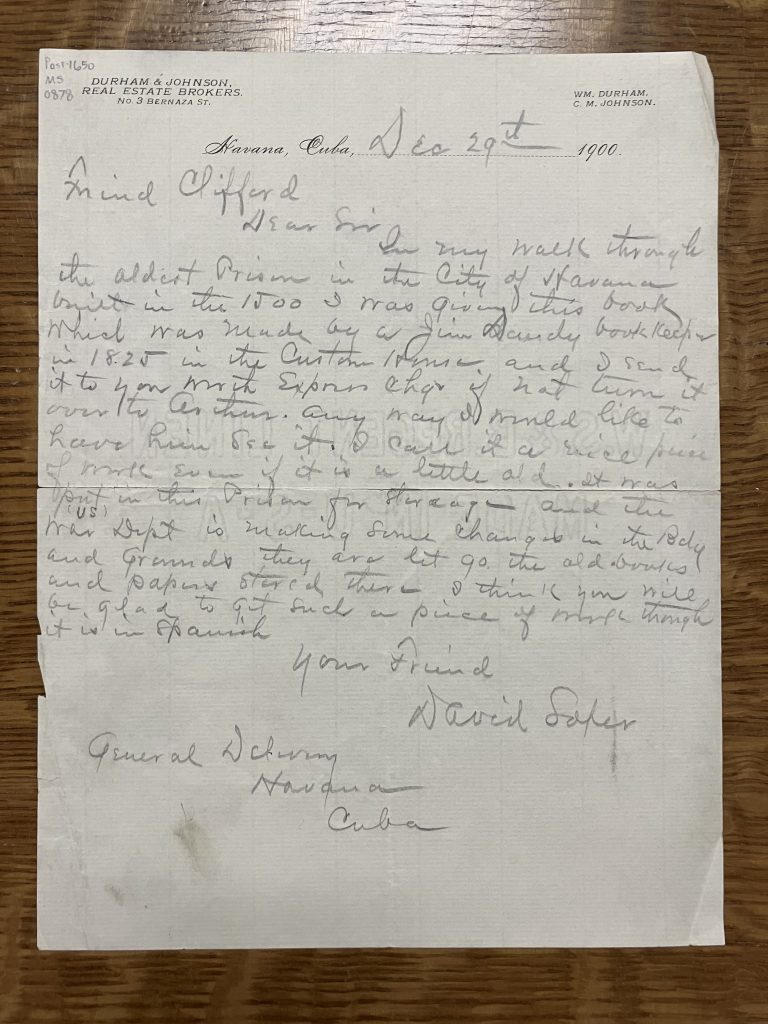 Post-1650
MS
0878
DURHAM & JOHNSON,
REAL ESTATE BROKERS.
No. 3 BERNAZA ST.
WM. DURHAM.
C. M. JOHNSON.
Havana, Cuba, Dec 29th 1900.
Frind Clifford
Dear Sir
In my walk through
the oldest Prison in the City of Havana
built in the 1500 I was giving this book
which was made by a Jim Dandy bookkeeper
in 1825 in the Custom House and I send
it to you worth Express Chgs if not turn it
over to Arthur. any way I would like to
have him see it. I call it a nice piece
of work even if it is a little old. It was
put in this Prison for storeage and the
(US)
War Dept is making some changes in the Bdg
and Grounds they are let go the old books
and papers stored there I think you will
be glad to get such a piece of work though
it is in Spanish
Your Friend
David Soper
General Delivery
Havana
Cuba